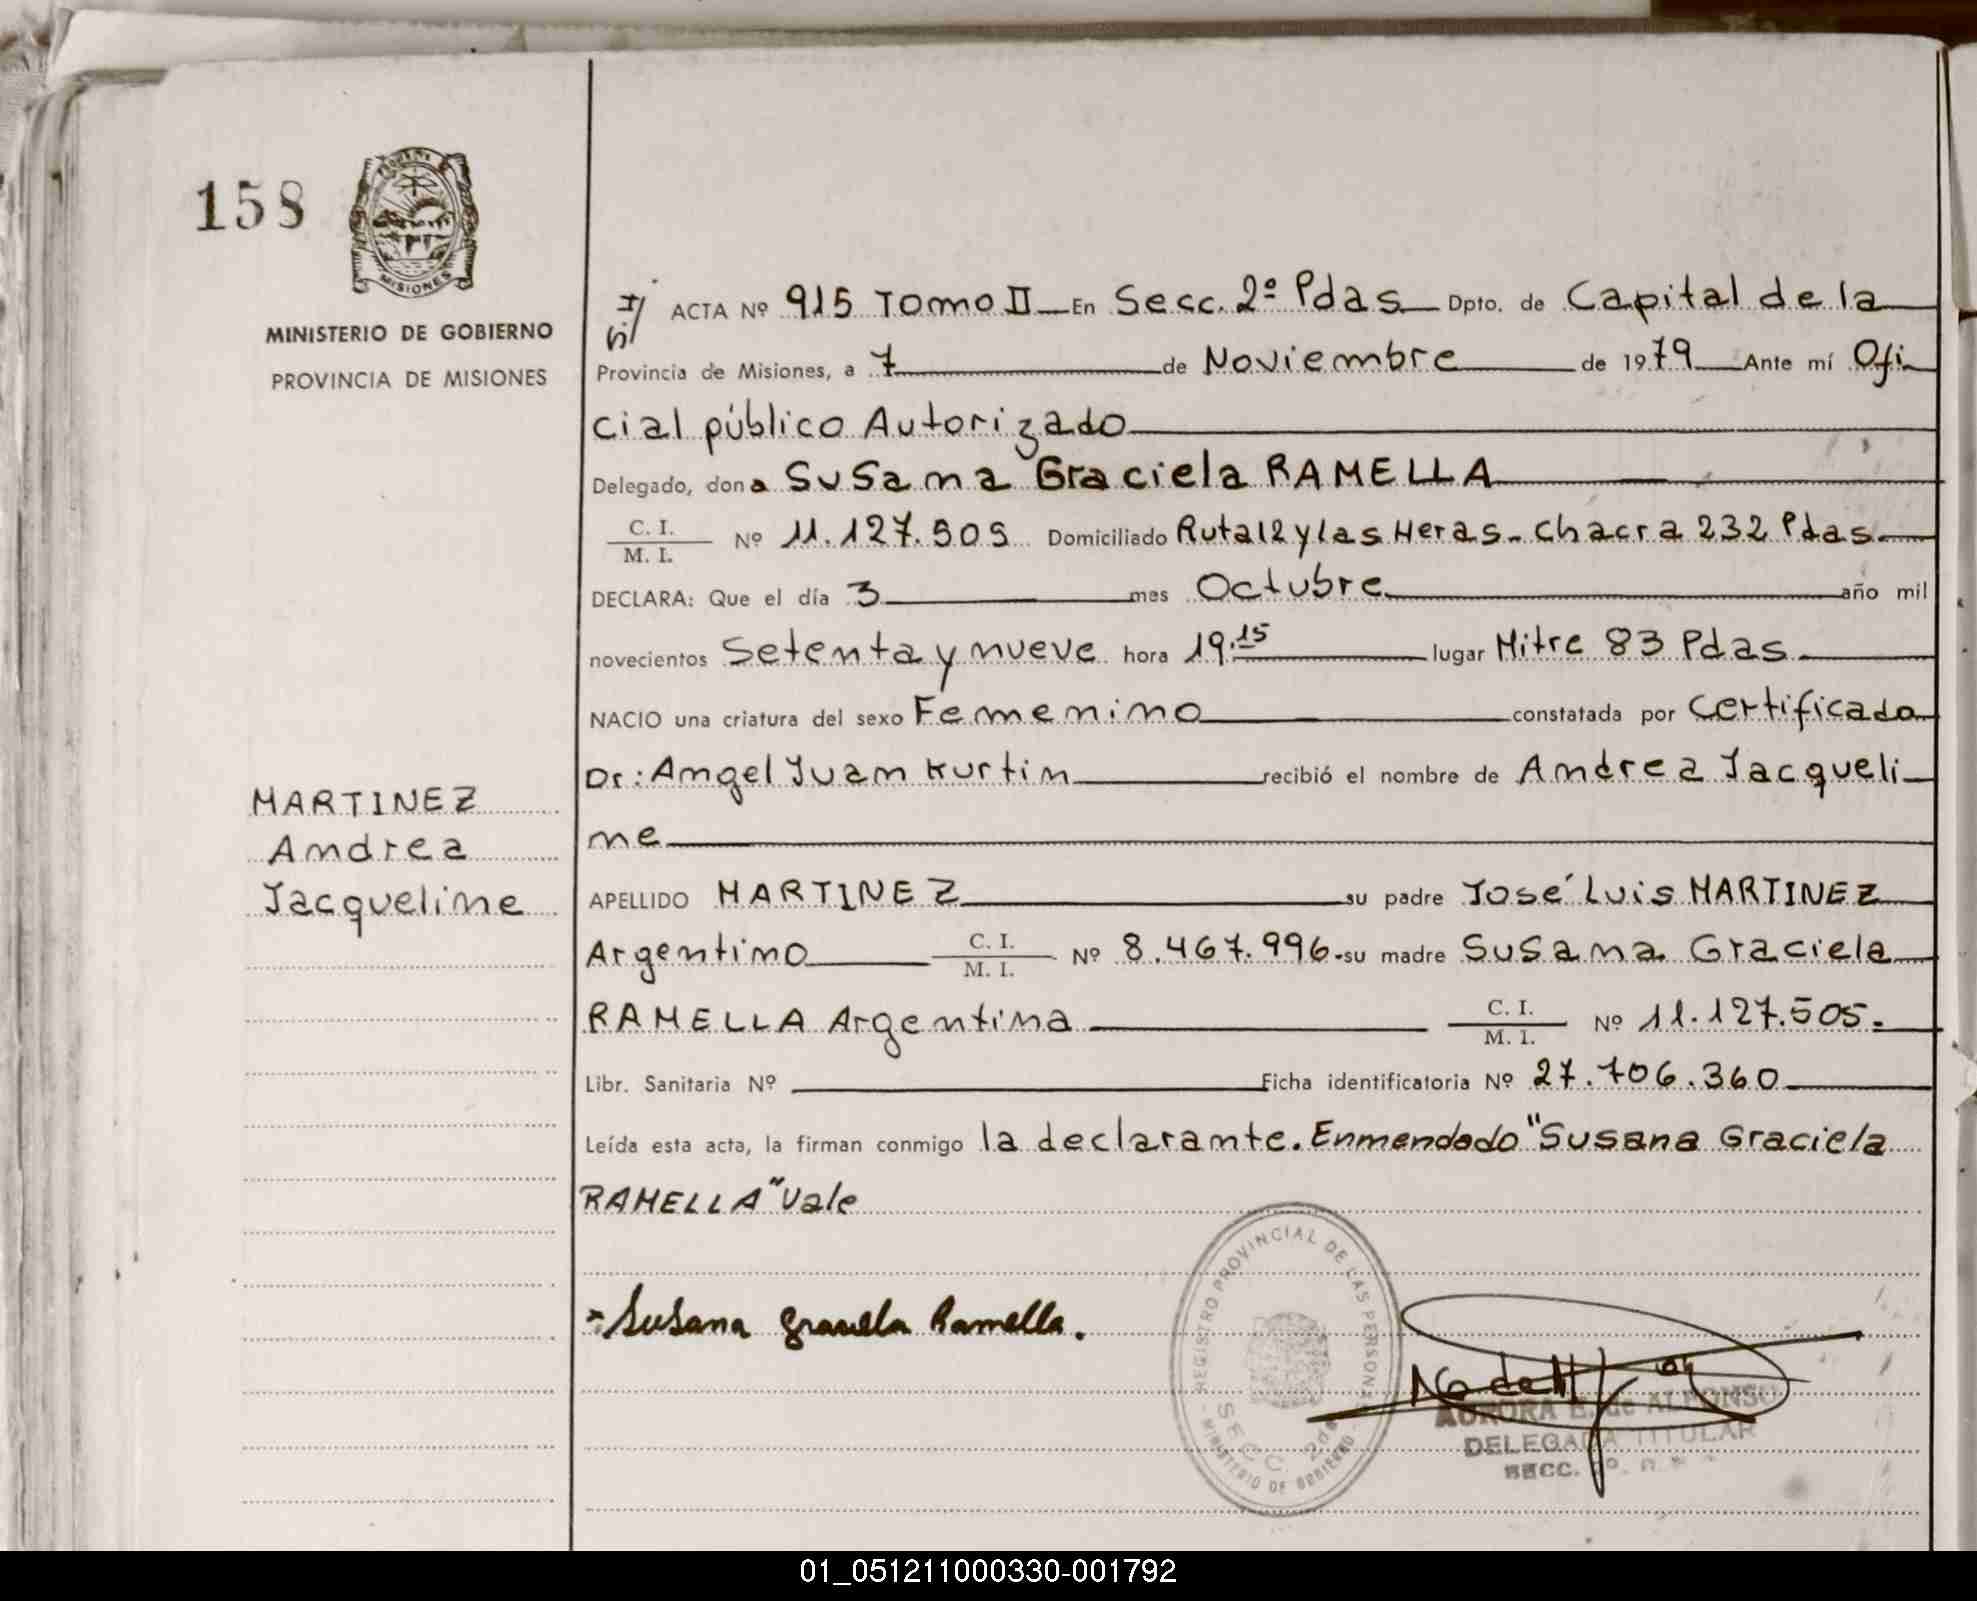 158
MISIONES
MINISTERIO DE GOBIERNO
PROVINCIA DE MISIONES
ACTA Nº 915 Tomo II En Secc. 2º Pdas Dpto. de Capital de la
Provincia de Misiones, a 7 de Noviembre de 1979 Ante mí Ofi
cial público Autorizado
Delegado, dona Susana Graciela RAMELLA
C. I.
M. I. Nº 11.127.505 Domiciliado Ruta 12 y las Heras - Chacra 232 Pdas.
DECLARA: Que el día 3 mes Octubre año mil
novecientos Setenta y nueve hora 19.15 lugar Mitre 83 Pdas.
NACIO una criatura del sexo Femenino constatada por Certificado
Dr: Angel Juan Kurtin recibió el nombre de Andrea Jacqueli
ne
MARTINEZ
Andrea
Jacqueline
APELLIDO MARTINEZ su padre José Luis MARTINEZ
Argentino C. I. M. I. Nº 8.467.996. su madre Susana Graciela
RAMELLA Argentina C. I. M. I. Nº 11.127.505.
Libr. Sanitaria Nº Ficha identificatoria Nº 27.706.360
Leída esta acta, la firman conmigo la declarante. Enmendado "Susana Graciela
RAMELLA" Vale
Susana Graciela Ramella.
REGISTRO PROVINCIAL DE LAS PERSONAS
SECC. 2da
MINISTERIO DE GOBIERNO
AURORA E. de ALFONSO
DELEGADA TITULAR
SECC.
01_051211000330-001792